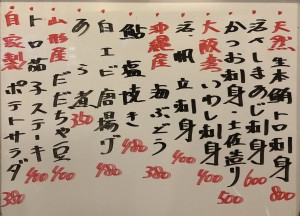 天然生本鮪トロ刺身 800
活〆しまあじ刺身 600
かつお刺身・土佐造り 500
大阪産いわし刺身 400
活帆立刺身 400
沖縄産海ぶどう 380
鮎塩焼き 480
白エビ唐揚げ 480
あら煮 350
山形産だだちゃ豆 400
トロ茄子ステーキ 400
自家製ポテトサラダ 380